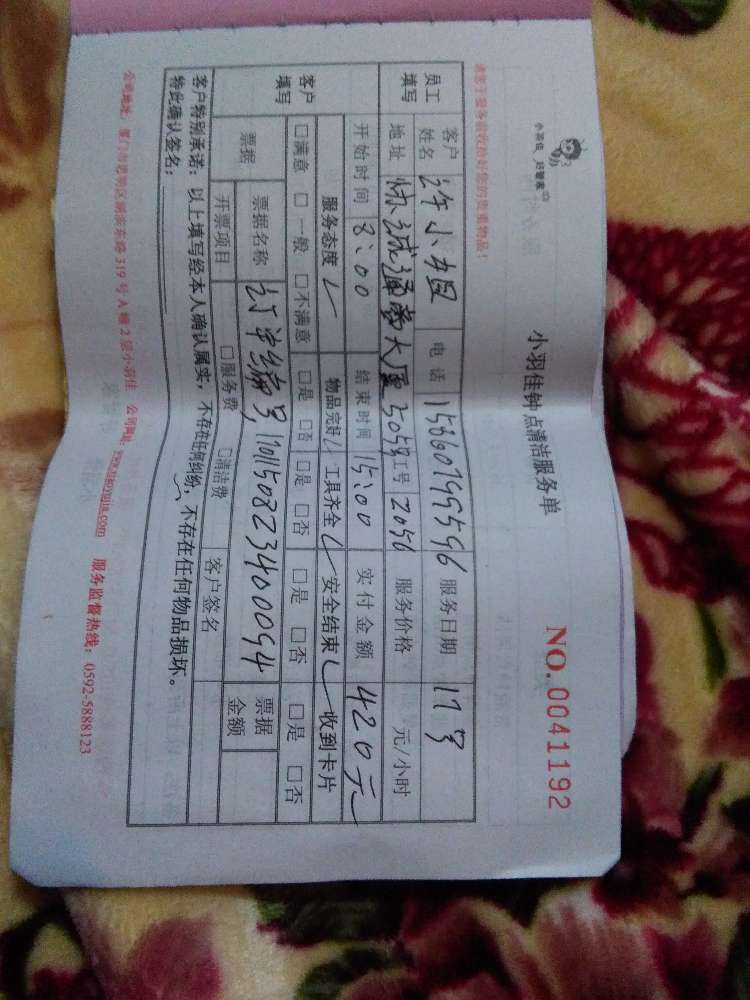 小羽佳 好管家
小羽佳钟点清洁服务单
NO. 0041192
请您于服务前收拾好您的贵重物品！
员工填写 客户姓名 许小姐 电话 服务日期 17号
地址 协诚通商大厦 505号 工号 2056 服务价格 元/小时
开始时间 8:00 结束时间 15:00 实付金额 420元
客户填写 服务态度 ✓ 物品完好 ✓ 工具齐全 ✓ 安全结束 ✓ 收到卡片
□满意 □一般 □不满意 □是 □否 □是 □否 □是 □否 □是 □否
票据 票据名称 订单编号 1701150823400094 票据金额
开票项目 □服务费 □清洁费 客户签名
客户特别承诺：以上填写经本人确认属实，不存在任何纠纷，不存在任何物品损坏。
特此确认签名：
公司地址：厦门市思明区湖滨东路319号A幢2层小羽佳 公司网址：www.xiaoyujia.com 服务监督热线：0592-5888123